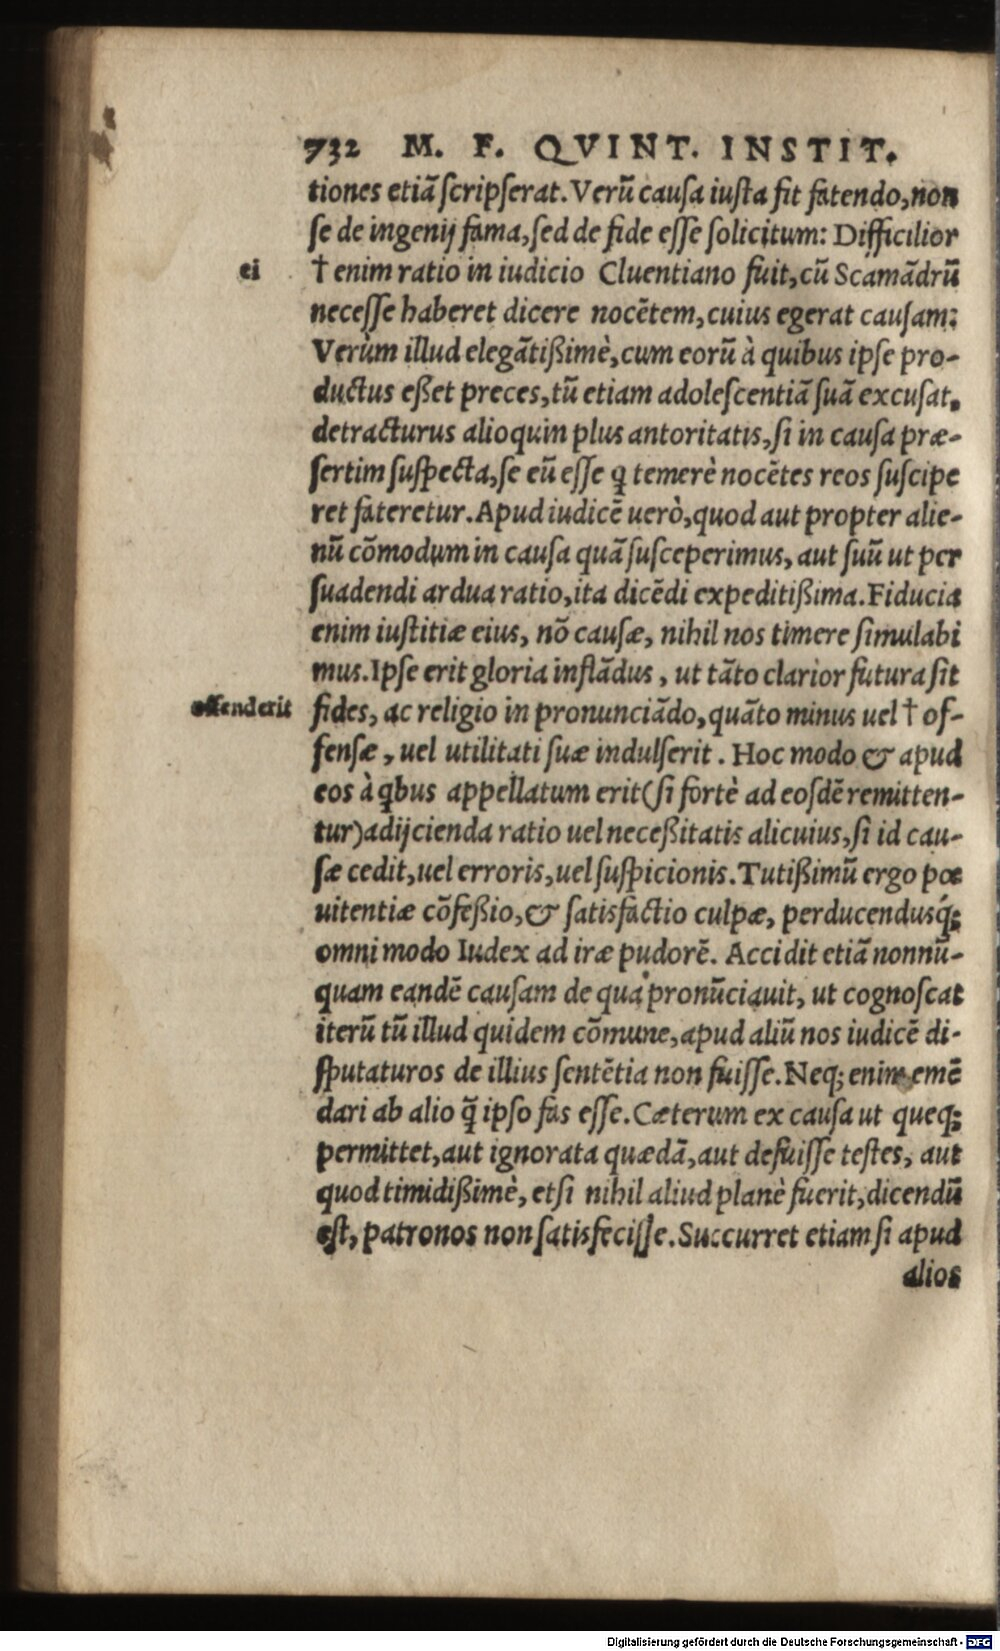 732 M. F. QVINT. INSTIT.
tiones etiã ſcripſerat. Verũ cauſa iuſta fit fatendo, non
ſe de ingenij fama, ſed de fide eſſe ſolicitum: Difficilior
ei † enim ratio in iudicio Cluentiano fuit, cũ Scamãdrũ
neceſſe haberet dicere nocẽtem, cuius egerat cauſam:
Verùm illud elegãtißimè, cum eorũ à quibus ipſe pro-
ductus eßet preces, tũ etiam adoleſcentiã ſuã excuſat.
detracturus alioquin plus antoritatis, ſi in cauſa præ-
ſertim ſuſpecta, ſe eũ eſſe ꝗ temerè nocẽtes reos ſuſcipe
ret fateretur. Apud iudicẽ uerò, quod aut propter alie-
nũ cõmodum in cauſa quã ſuſceperimus, aut ſuũ ut per
ſuadendi ardua ratio, ita dicẽdi expeditißima. Fiducia
enim iuſtitiæ eius, nõ cauſæ, nihil nos timere ſimulabi
mus. Ipſe erit gloria inflãdus, ut tãto clarior futura ſit
offenderit fides, ac religio in pronunciãdo, quãto minus uel † of-
fenſæ, uel utilitati ſuæ indulſerit. Hoc modo & apud
eos à ꝗbus appellatum erit (ſi fortè ad eoſdẽ remitten-
tur) adijcienda ratio uel neceßitatis alicuius, ſi id cau-
ſæ cedit, uel erroris, uel ſuſpicionis. Tutißimũ ergo pœ
uitentiæ cõfeßio, & ſatisfactio culpæ, perducendusq́;
omni modo Iudex ad iræ pudorẽ. Accidit etiã nonnũ-
quam eandẽ cauſam de qua pronũciauit, ut cognoſcat
iterũ tũ illud quidem cõmune, apud aliũ nos iudicẽ di-
ſputaturos de illius ſentẽtia non fuiſſe. Neq; enim emẽ
dari ab alio q̃ ipſo fas eſſe. Cæterum ex cauſa ut queq;
permittet, aut ignorata quædã, aut defuiſſe teſtes, aut
quod timidißimè, etſi nihil aliud planè fuerit, dicendũ
eſt, patronos non ſatisfeciſſe. Succurret etiam ſi apud
alios
Digitalisierung gefördert durch die Deutsche Forschungsgemeinschaft - DFG